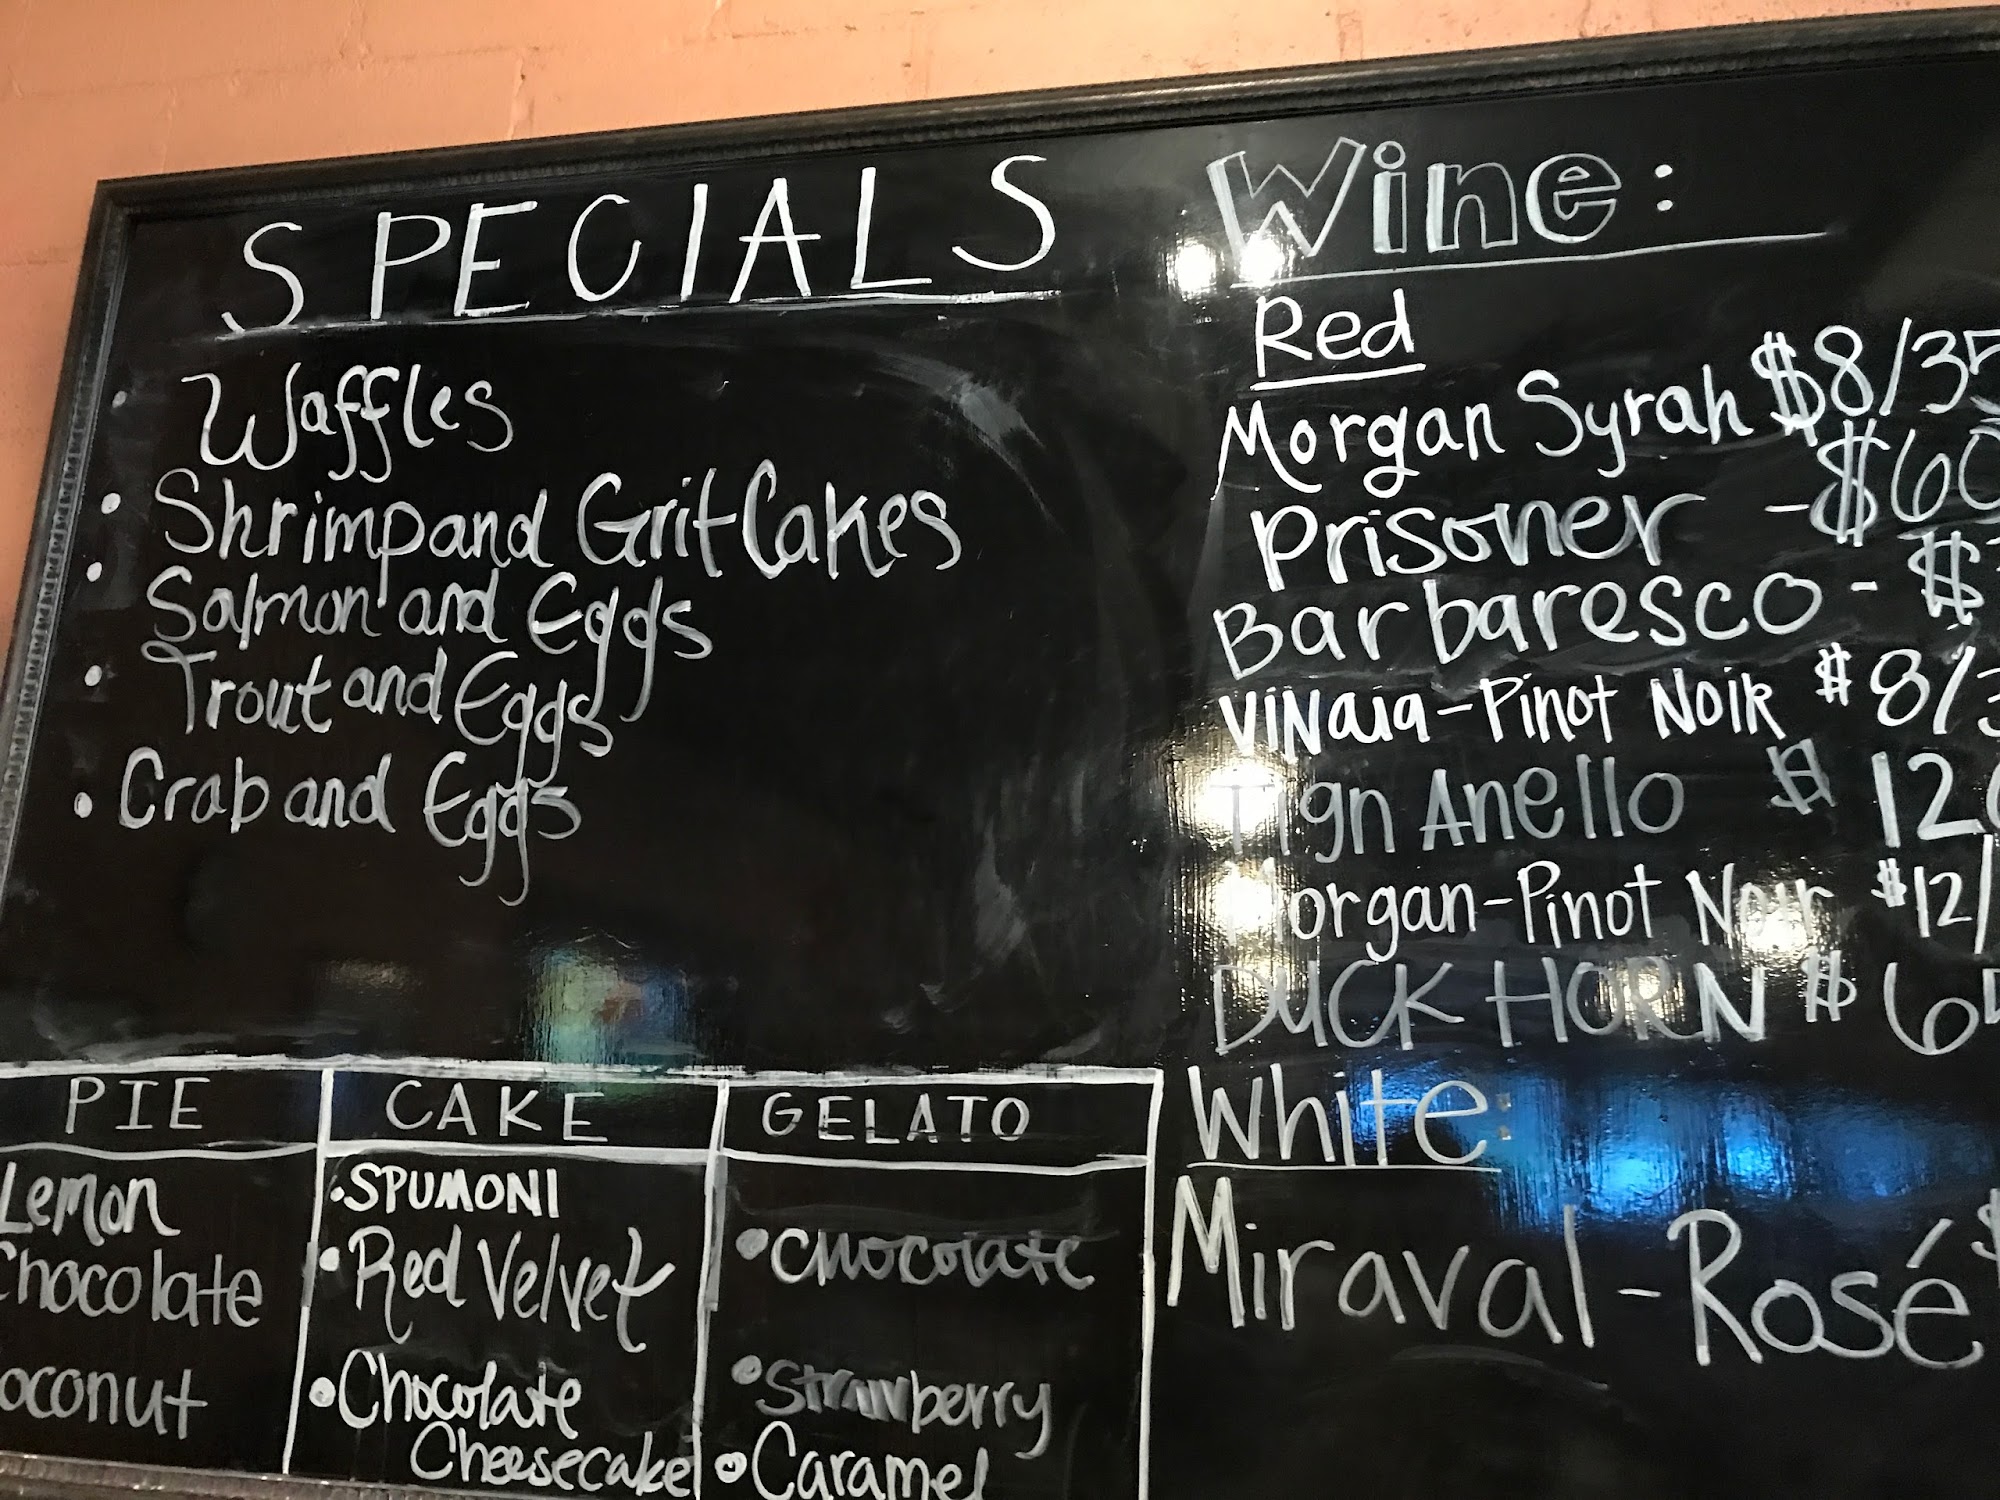 SPECIALS
• Waffles
• Shrimp and Grit Cakes
• Salmon and Eggs
• Trout and Eggs
• Crab and Eggs
PIE
Lemon
Chocolate
oconut
CAKE
• SPUMONI
• Red Velvet
• Chocolate
Cheesecake
GELATO
• Chocolate
• Strawberry
• Caramel
Wine:
Red
Morgan Syrah $8/35
Prisoner - $60
Barbaresco - $
ViNaia - Pinot Noir $8/3
Tign Anello $120
Morgan - Pinot Noir $12/
DUCK HORN $6
White:
Miraval - Rosé $